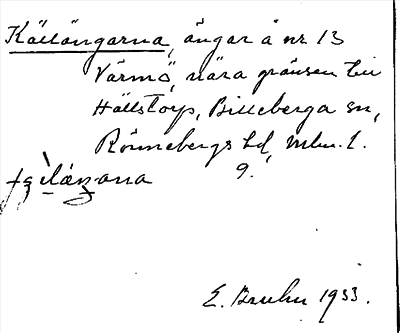 Källängarna, ängar å nr 13
Värmö, nära gränsen till
Hällstorp, Billeberga sn,
Rönnebergs hd, Mlm. l.
9.
E. Bruhn 1933.